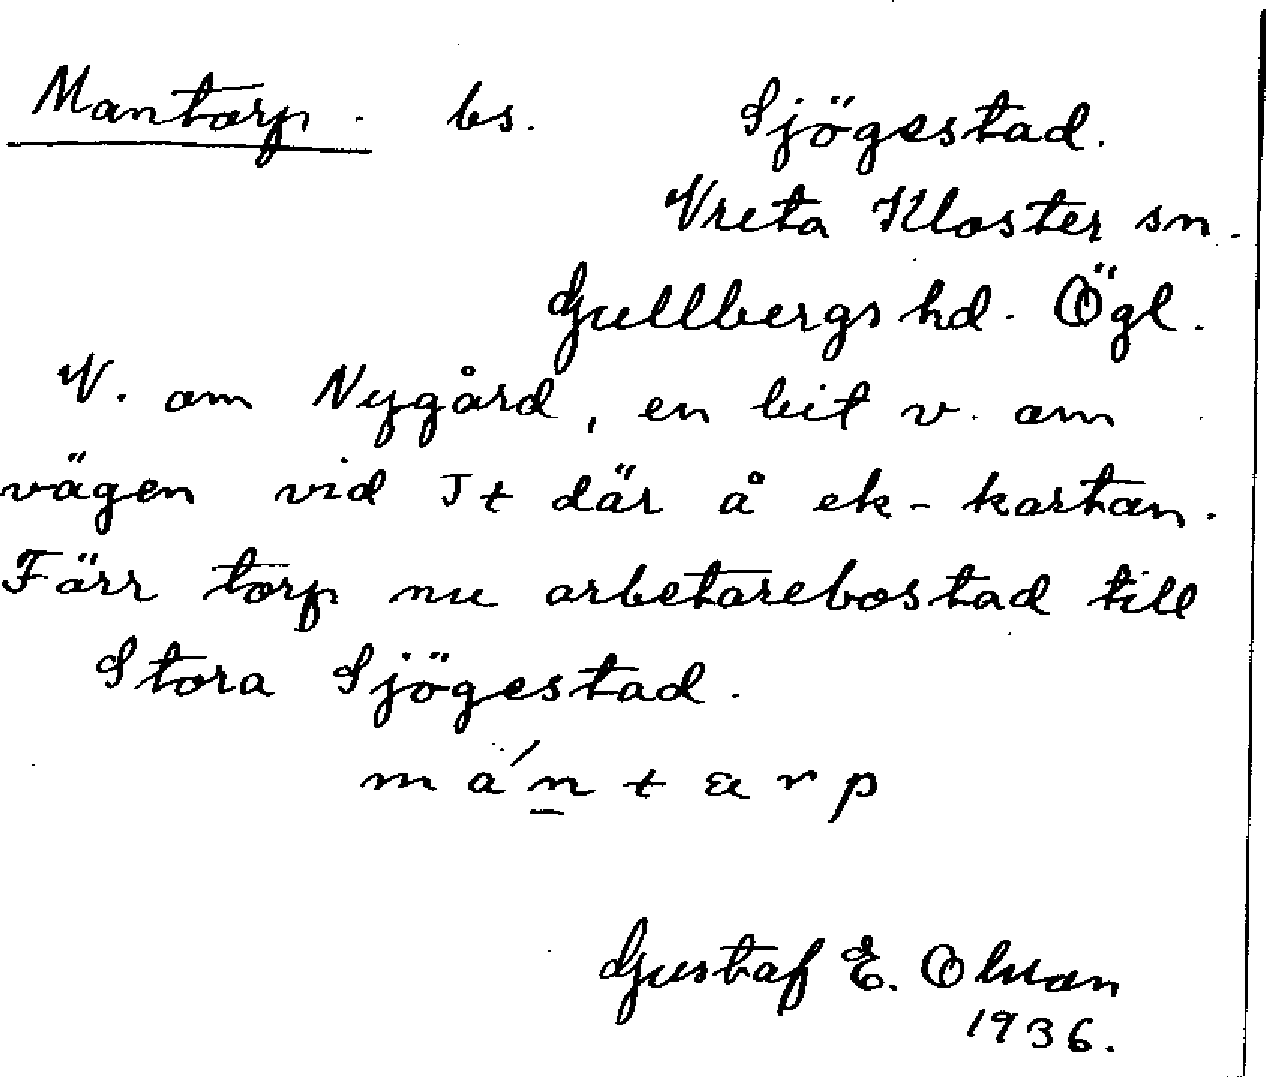 Mantorp. bs. Sjögestad.
Vreta Kloster sn.
Gullbergs hd. Ögl.
V. om Nygård, en bit v. om
vägen vid J t där å ek-kartan.
Färr torp nu arbetarebostad till
Stora Sjögestad.
má́n̲tarp
Gustaf E. Olman
1936.